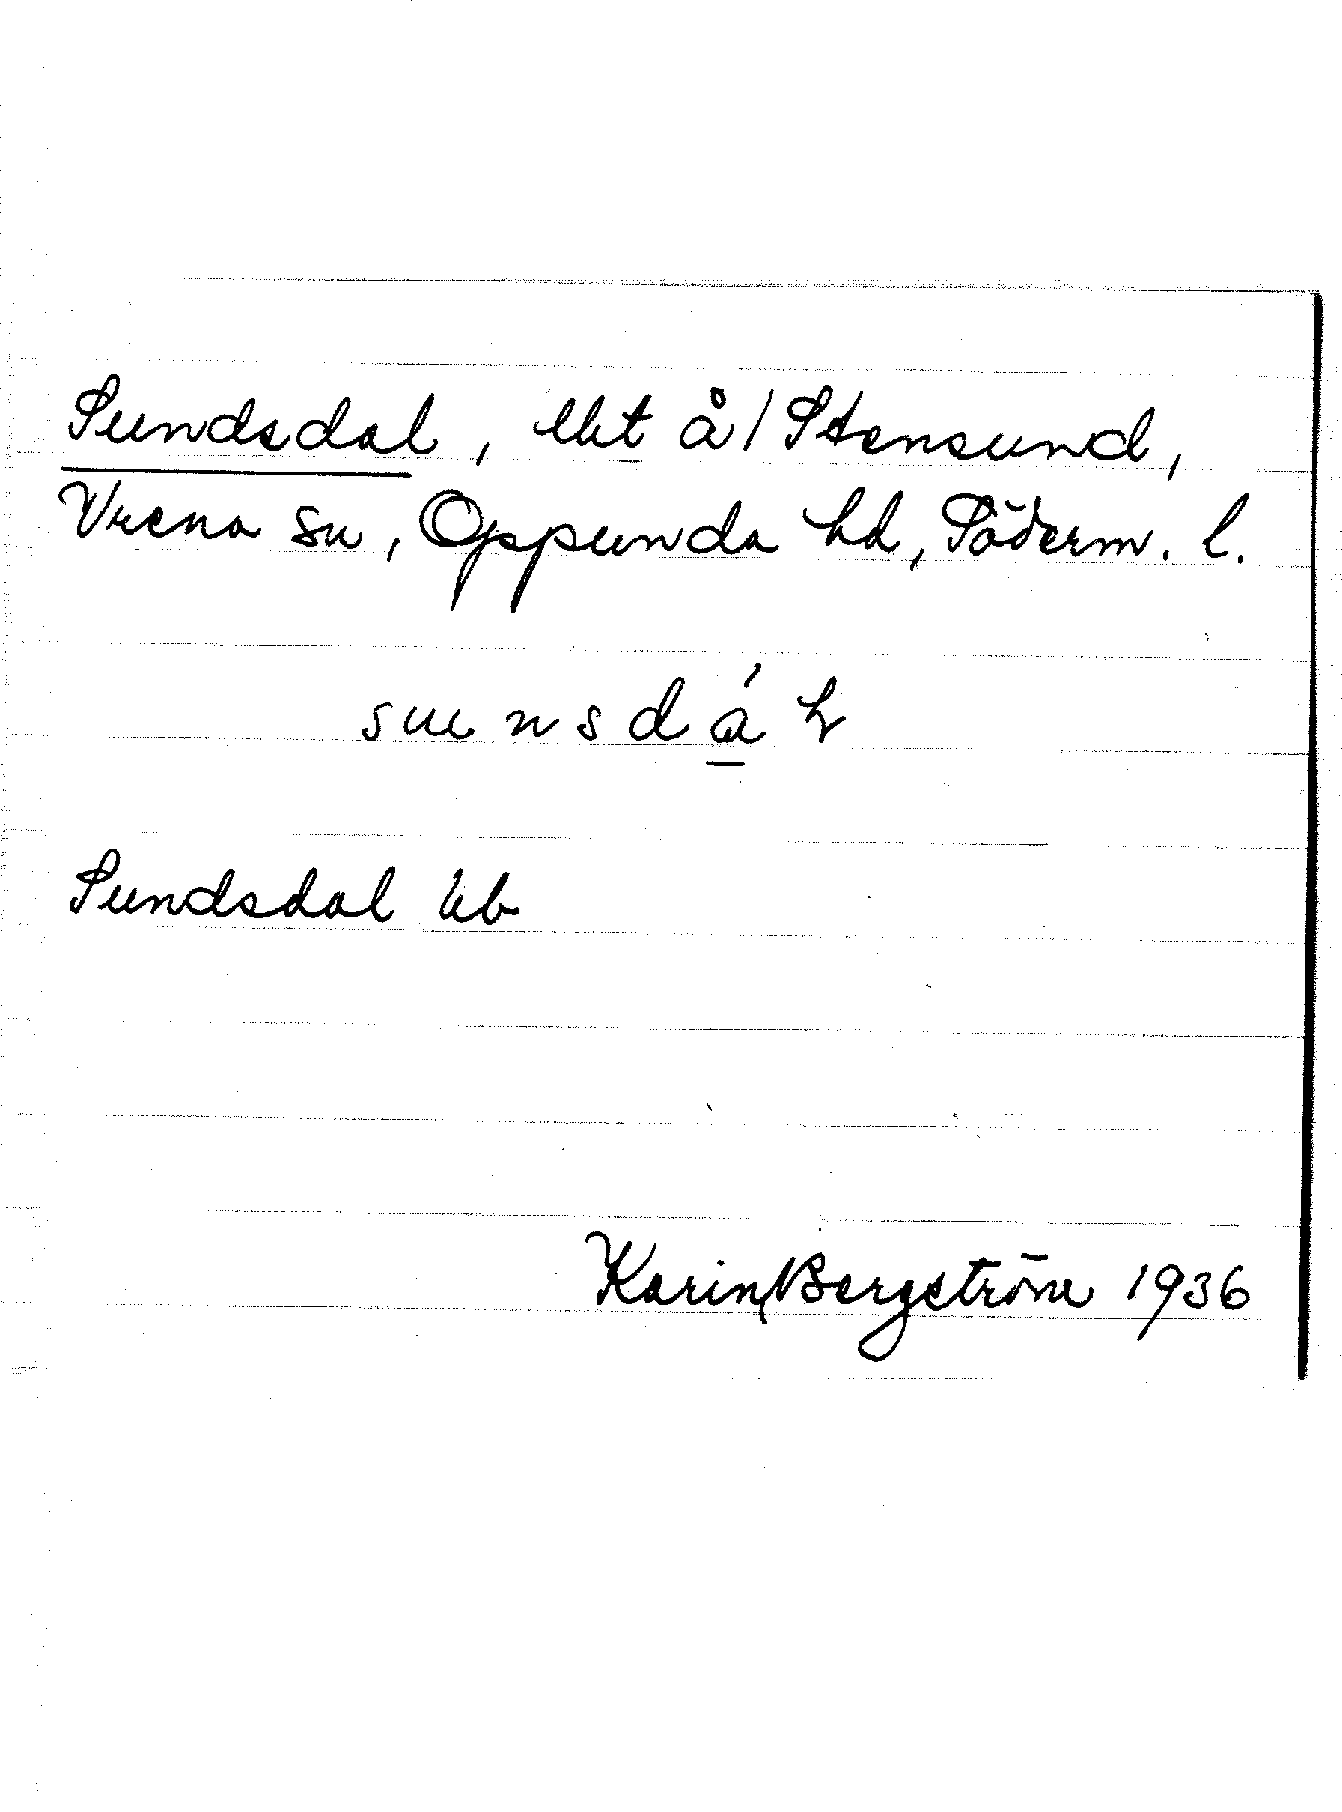 Sundsdal, lht å/ Stensund,
Vrena sn, Oppunda hd, Söderm. l.
sunsdál
Sundsdal kb
Karin Bergström 1936